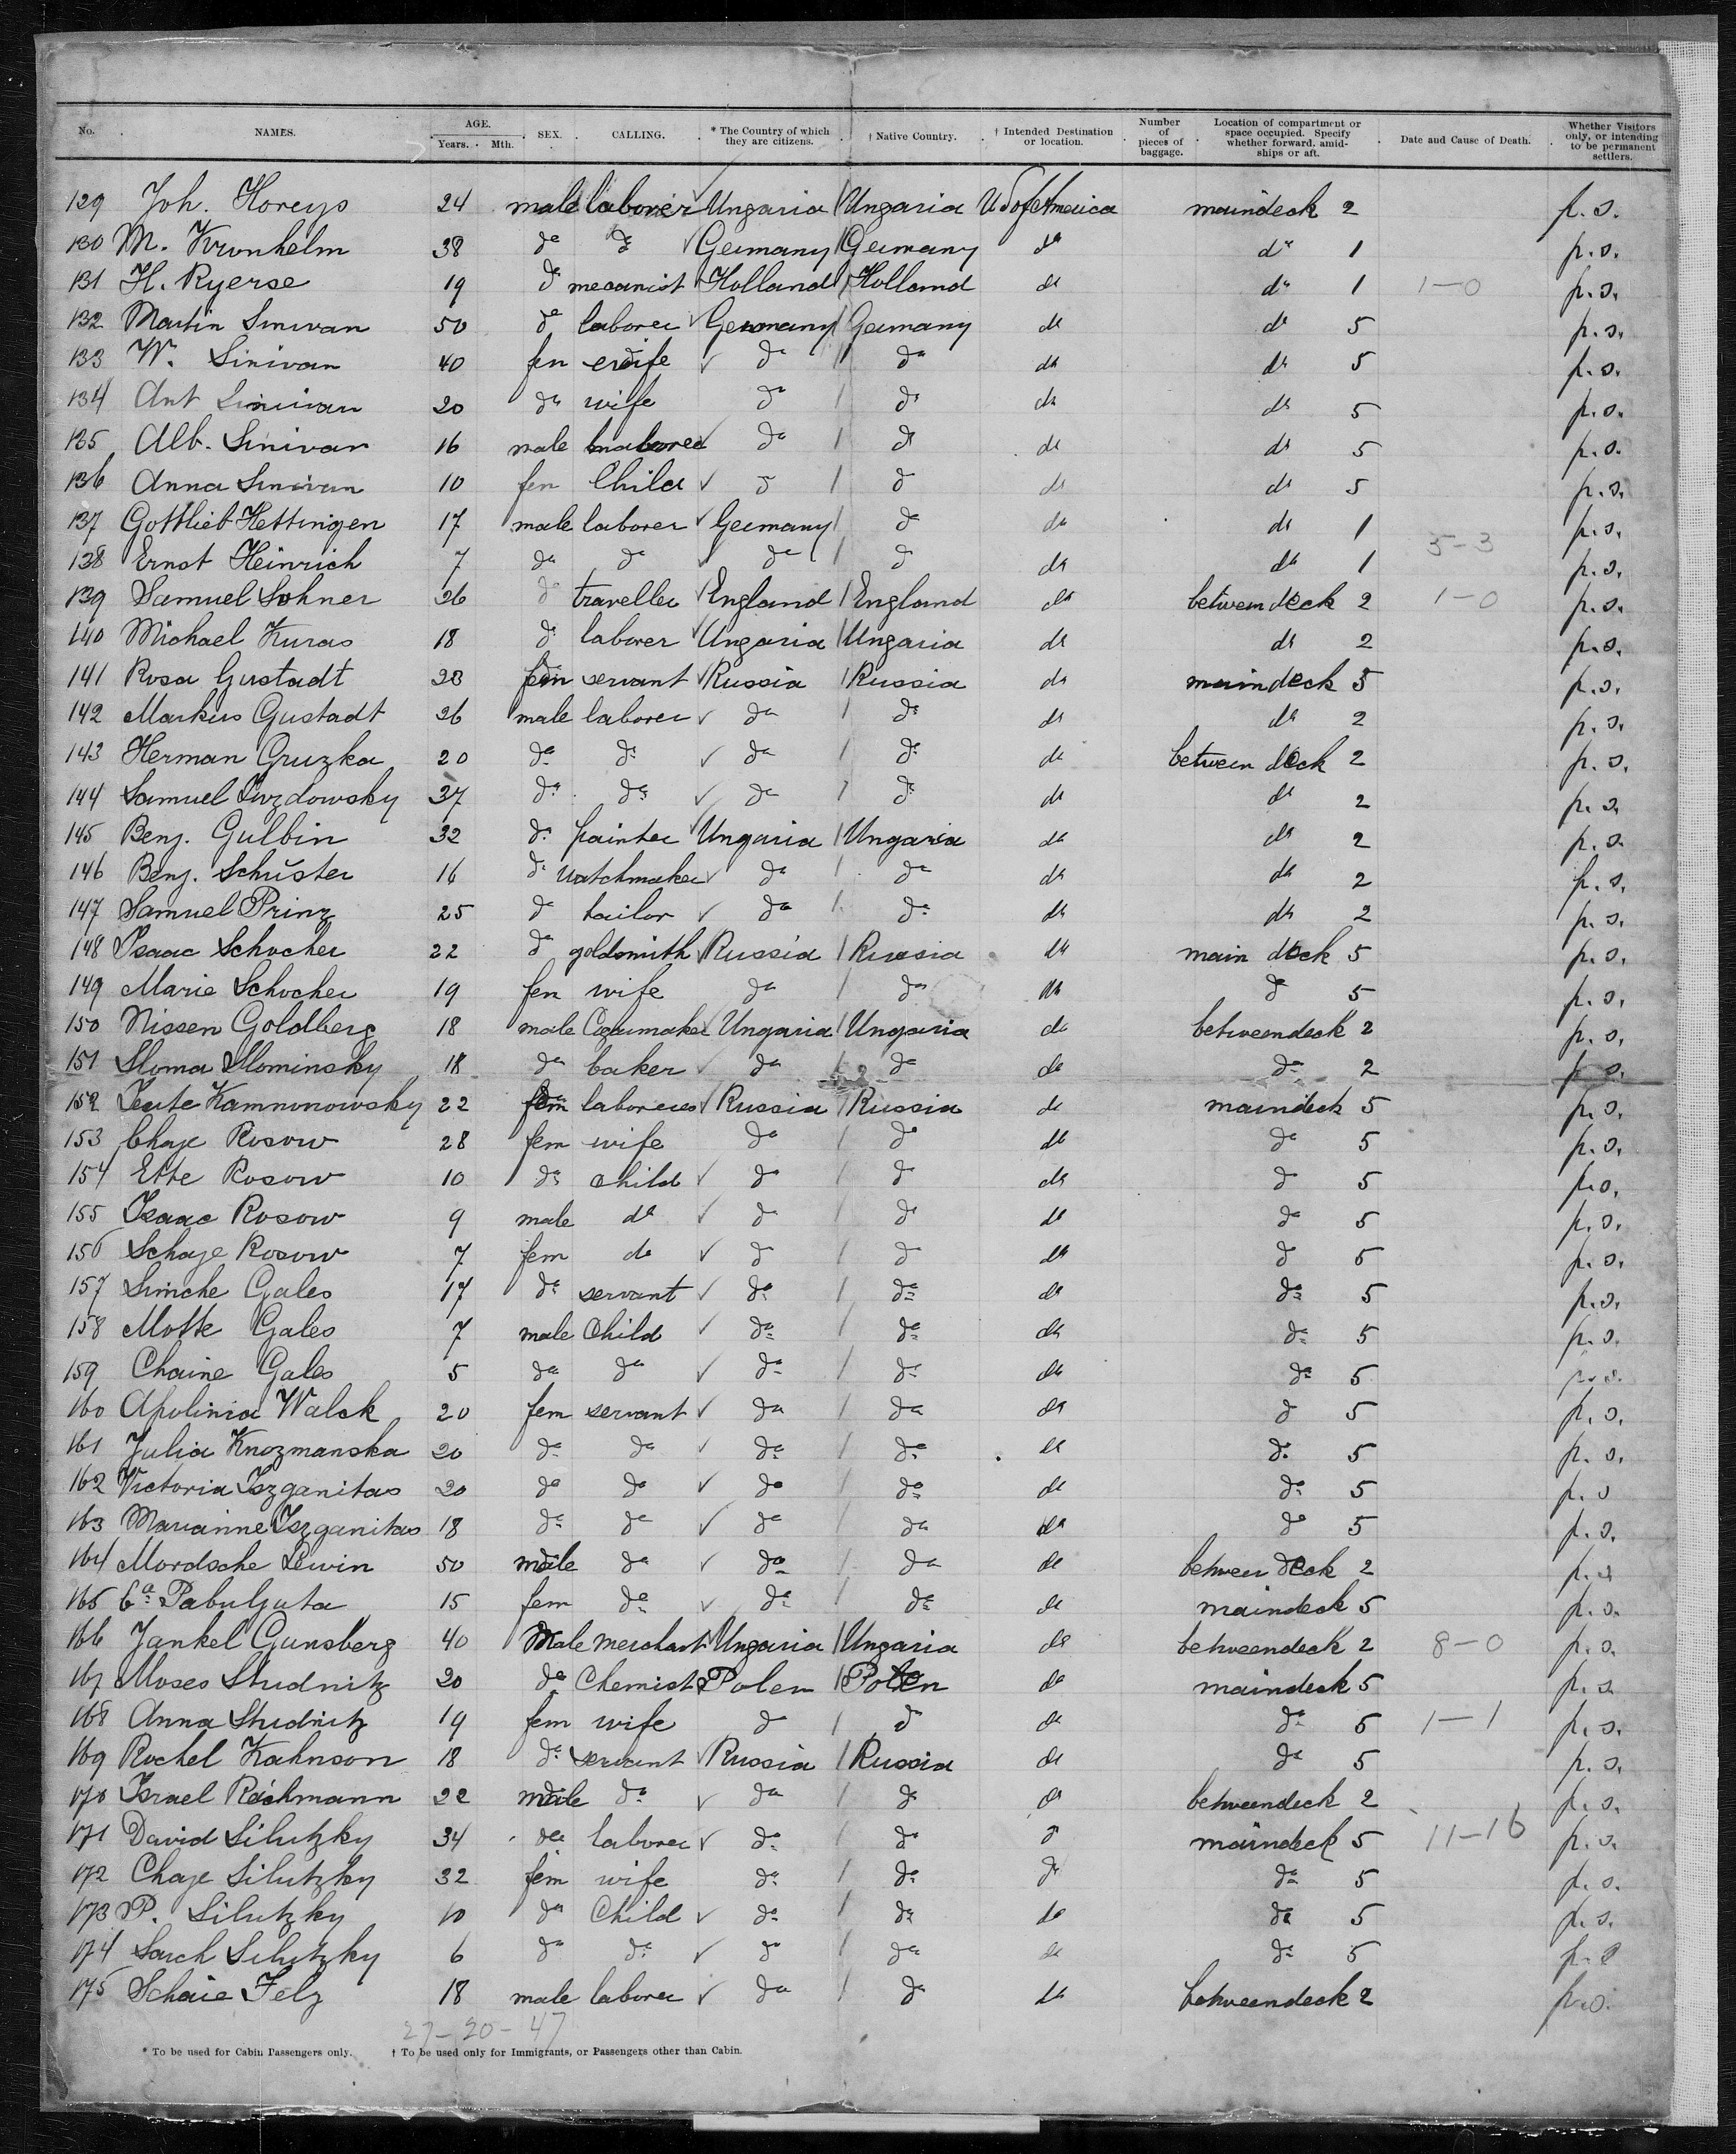 No. NAMES. AGE. Years. Mth. SEX. CALLING. * The Country of which they are citizens. † Native Country. † Intended Destination or location. Number of pieces of baggage. Location of compartment or space occupied. Specify whether forward. amid-ships or aft. Date and Cause of Death. Whether Visitors only, or intending to be permanent settlers.
129 Joh. Horeys 24 male laborer Ungaria Ungaria U S of America maindeck 2 p. s.
130 M. Kronhelm 38 do do Germany Germany do do 1 p. s.
131 H. Ryerse 19 do mecanist Holland Holland do do 1 1-0 p. s.
132 Martin Sinivan 50 do laborer Germany Germany do do 5 p. s.
133 W. Sinivan 40 fem wife do do do do 5 p. s.
134 Ant Sinivan 20 do wife do do do do 5 p. s.
135 Alb. Sinivan 16 male laborer do do do do 5 p. s.
136 Anna Sinivan 10 fem Child do do do do 5 p. s.
137 Gottlieb Hettingen 17 male laborer Germany do do do 1 p. s.
138 Ernst Heinrich 7 do do do do do do 1 3-3 p. s.
139 Samuel Sohner 26 do traveller England England do between deck 2 1-0 p. s.
140 Michael Kuras 18 do laborer Ungaria Ungaria do do 2 p. s.
141 Rosa Gustadt 28 fem servant Russia Russia do maindeck 5 p. s.
142 Markus Gustadt 26 male laborer do do do do 2 p. s.
143 Herman Gruzka 20 do do do do do between deck 2 p. s.
144 Samuel 37 do do do do do do 2 p. s.
145 Benj. Gulbin 32 do painter Ungaria Ungaria do do 2 p. s.
146 Benj. Schuster 16 do watchmaker do do do do 2 p. s.
147 Samuel Prinz 25 do tailor do do do do 2 p. s.
148 Isaac Schocher 22 do goldsmith Russia Russia do main deck 5 p. s.
149 Marie Schocher 19 fem wife do do do do 5 p. s.
150 Nissen Goldberg 18 male Ungaria Ungaria do betweendeck 2 p. s.
151 Sloma Slominsky 18 do baker do do do do 2 p. s.
152 Kamnonowsky 22 fem laboress Russia Russia do maindeck 5 p. s.
153 Chaje Rosow 28 fem wife do do do do 5 p. s.
154 Ette Rosow 10 do child do do do do 5 p. s.
155 Isaac Rosow 9 male do do do do do 5 p. s.
156 Schaje Rosow 7 fem do do do do do 5 p. s.
157 Simche Gales 17 do servant do do do do 5 p. s.
158 Motte Gales 7 male Child do do do do 5 p. s.
159 Chaine Gales 5 do do do do do do 5 p. s.
160 Apolinia Walck 20 fem servant do do do do 5 p. s.
161 Julia Knozmanska 20 do do do do do do 5 p. s.
162 Victoria Iszganitas 20 do do do do do do 5 p. s
163 Marianne Iszganitas 18 do do do do do do 5 p. s.
164 Mordsche Lewin 50 male do do do do between deck 2 p. s
165 15 fem do do do do maindeck 5 p. s.
166 Jankel Gunsberg 40 male merchant Ungaria Ungaria do betweendeck 2 8-0 p. s.
167 Moses Studnitz 20 do Chemist Polen Polen do maindeck 5 p. s
168 Anna Studnitz 19 fem wife do do do do 5 1-1 p. s.
169 Rochel Kahnson 18 do servant Russia Russia do do 5 p. s.
170 Israel Reichmann 22 male do do do do betweendeck 2 p. s.
171 David Silutzky 34 do laborer do do do maindeck 5 11-16 p. s.
172 Chaje Silutzky 32 fem wife do do do do 5 p. s.
173 P. Silutzky 10 do Child do do do do 5 p. s.
174 Sarch Silutzky 6 do do do do do do 5 p. s
175 Schaie Felz 18 male laborer do do do betweendeck 2 p. s.
27-20-47
* To be used for Cabin Passengers only. † To be used only for Immigrants, or Passengers other than Cabin.